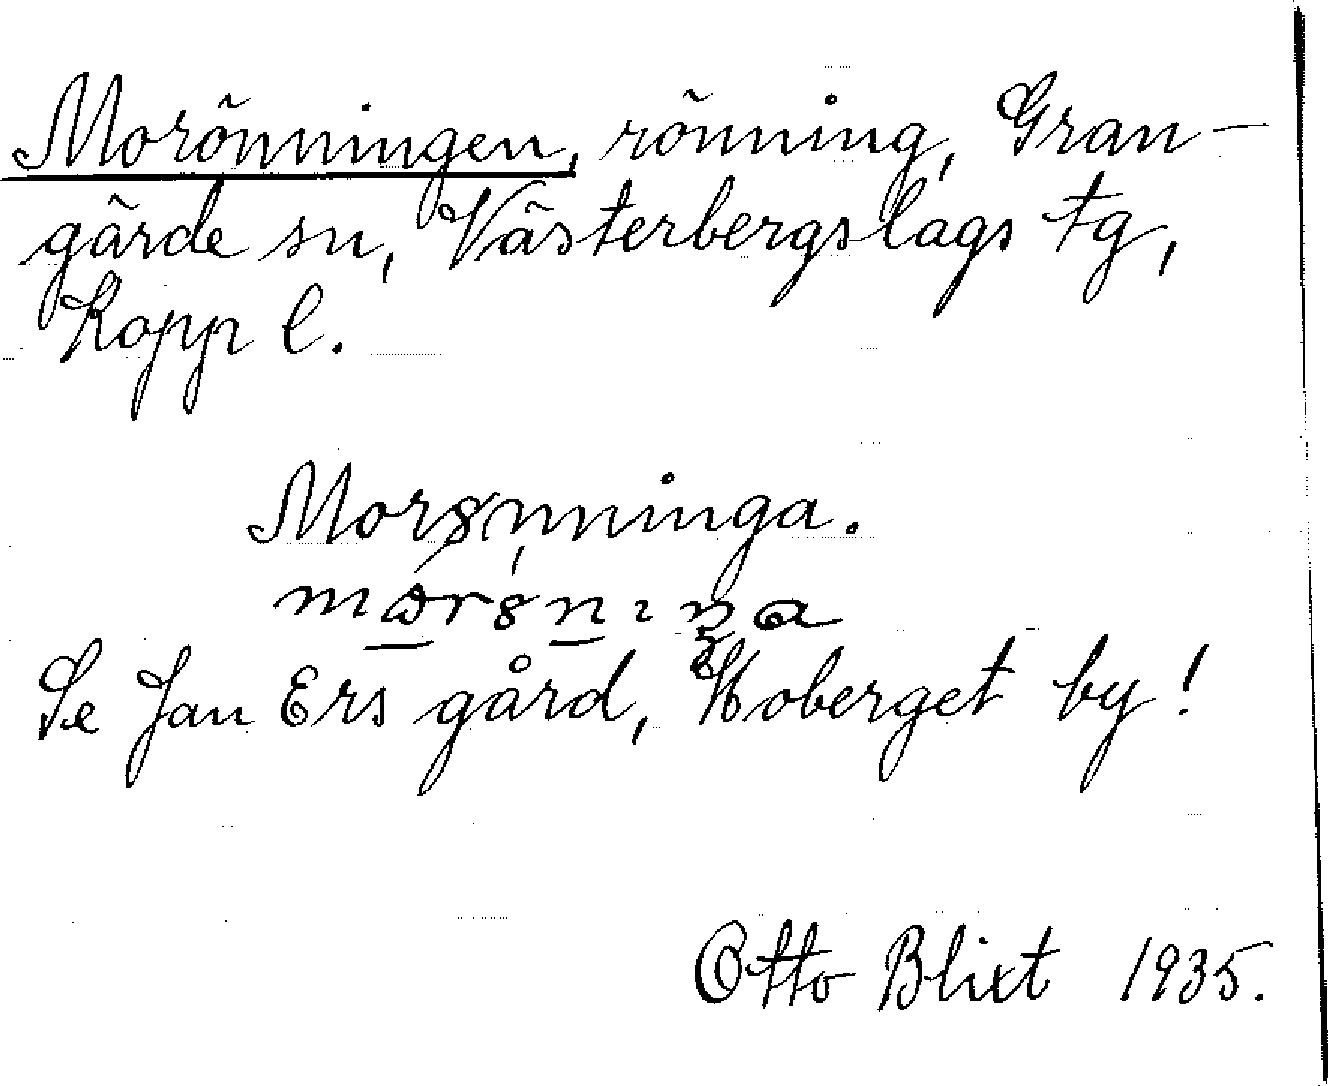 Morönningen, rönning, Gran-
gärde sn, Västerbergslags tg,
Kopp l.
Morsnninga.
Se Jan Ers gård, Hoberget by!
Otto Blixt 1935.